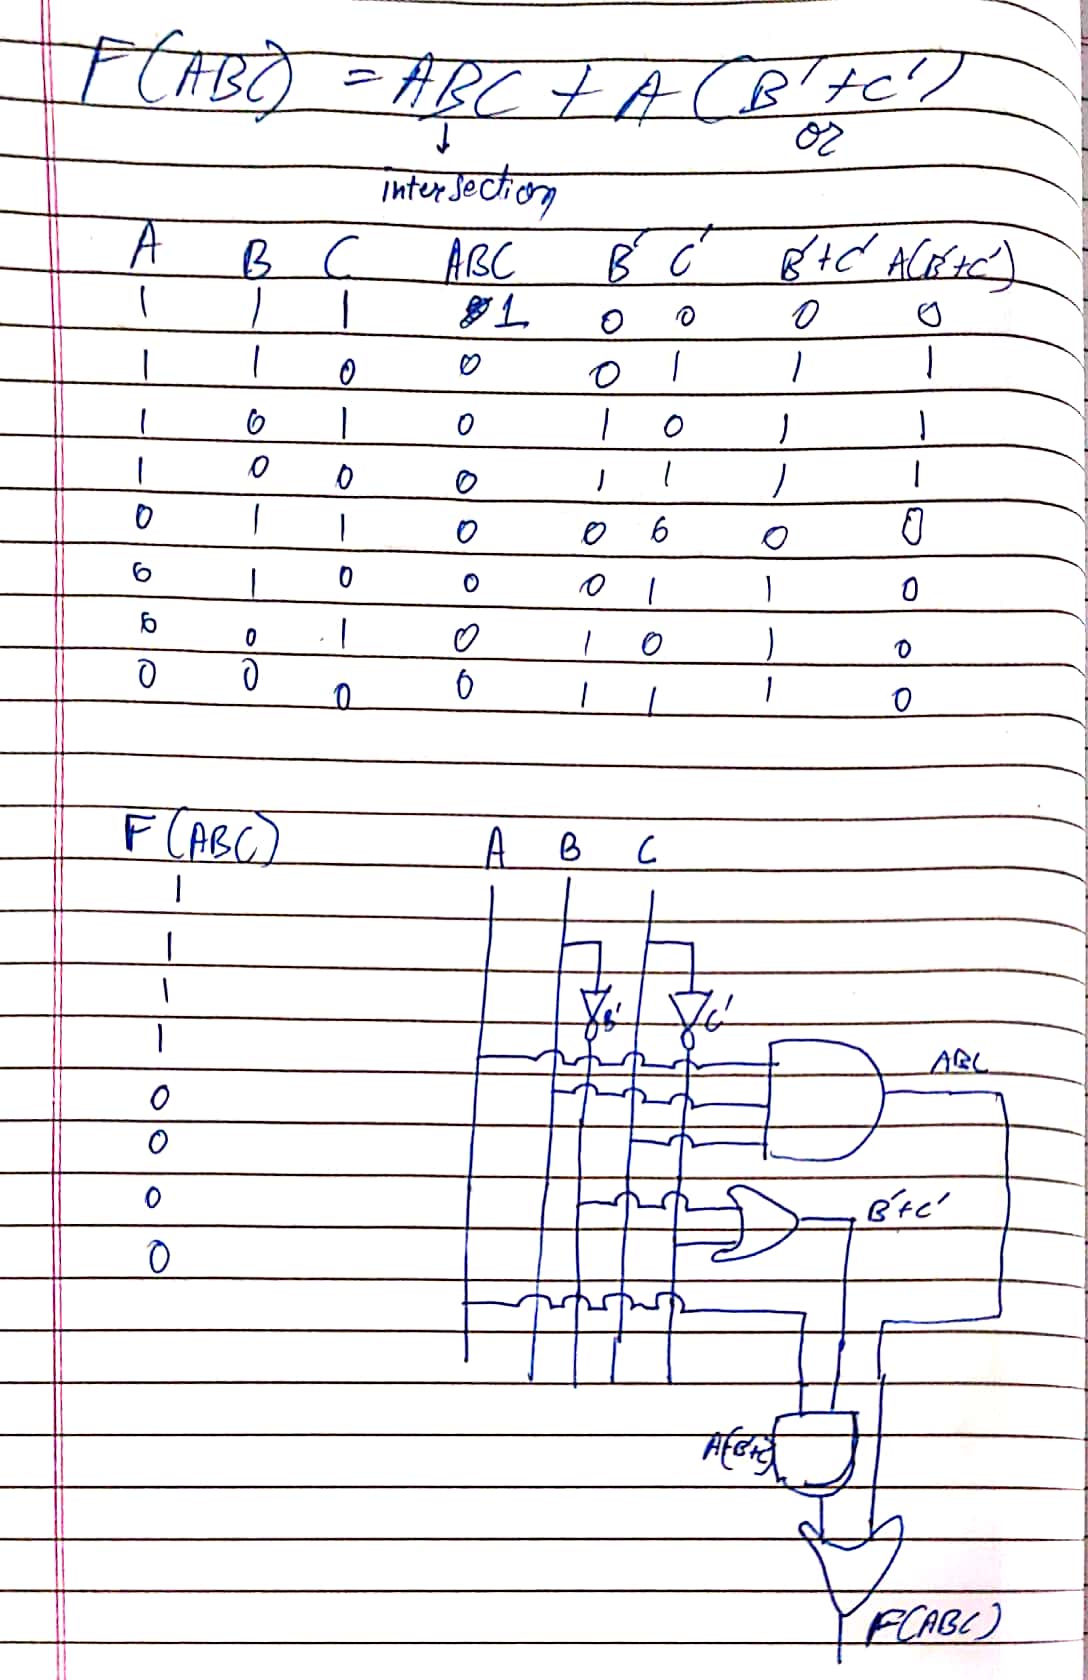 F(ABC) = ABC + A(B'+C')
↓ or
intersection
A B C ABC B' C' B'+C' A(B'+C')
1 1 1 1 0 0 0 0
1 1 0 0 0 1 1 1
1 0 1 0 1 0 1 1
1 0 0 0 1 1 1 1
0 1 1 0 0 0 0 0
0 1 0 0 0 1 1 0
0 0 1 0 1 0 1 0
0 0 0 0 1 1 1 0
F(ABC)
1
1
1
1
0
0
0
0
A B C
B' C'
ABC
B'+C'
A(B'+C')
F(ABC)